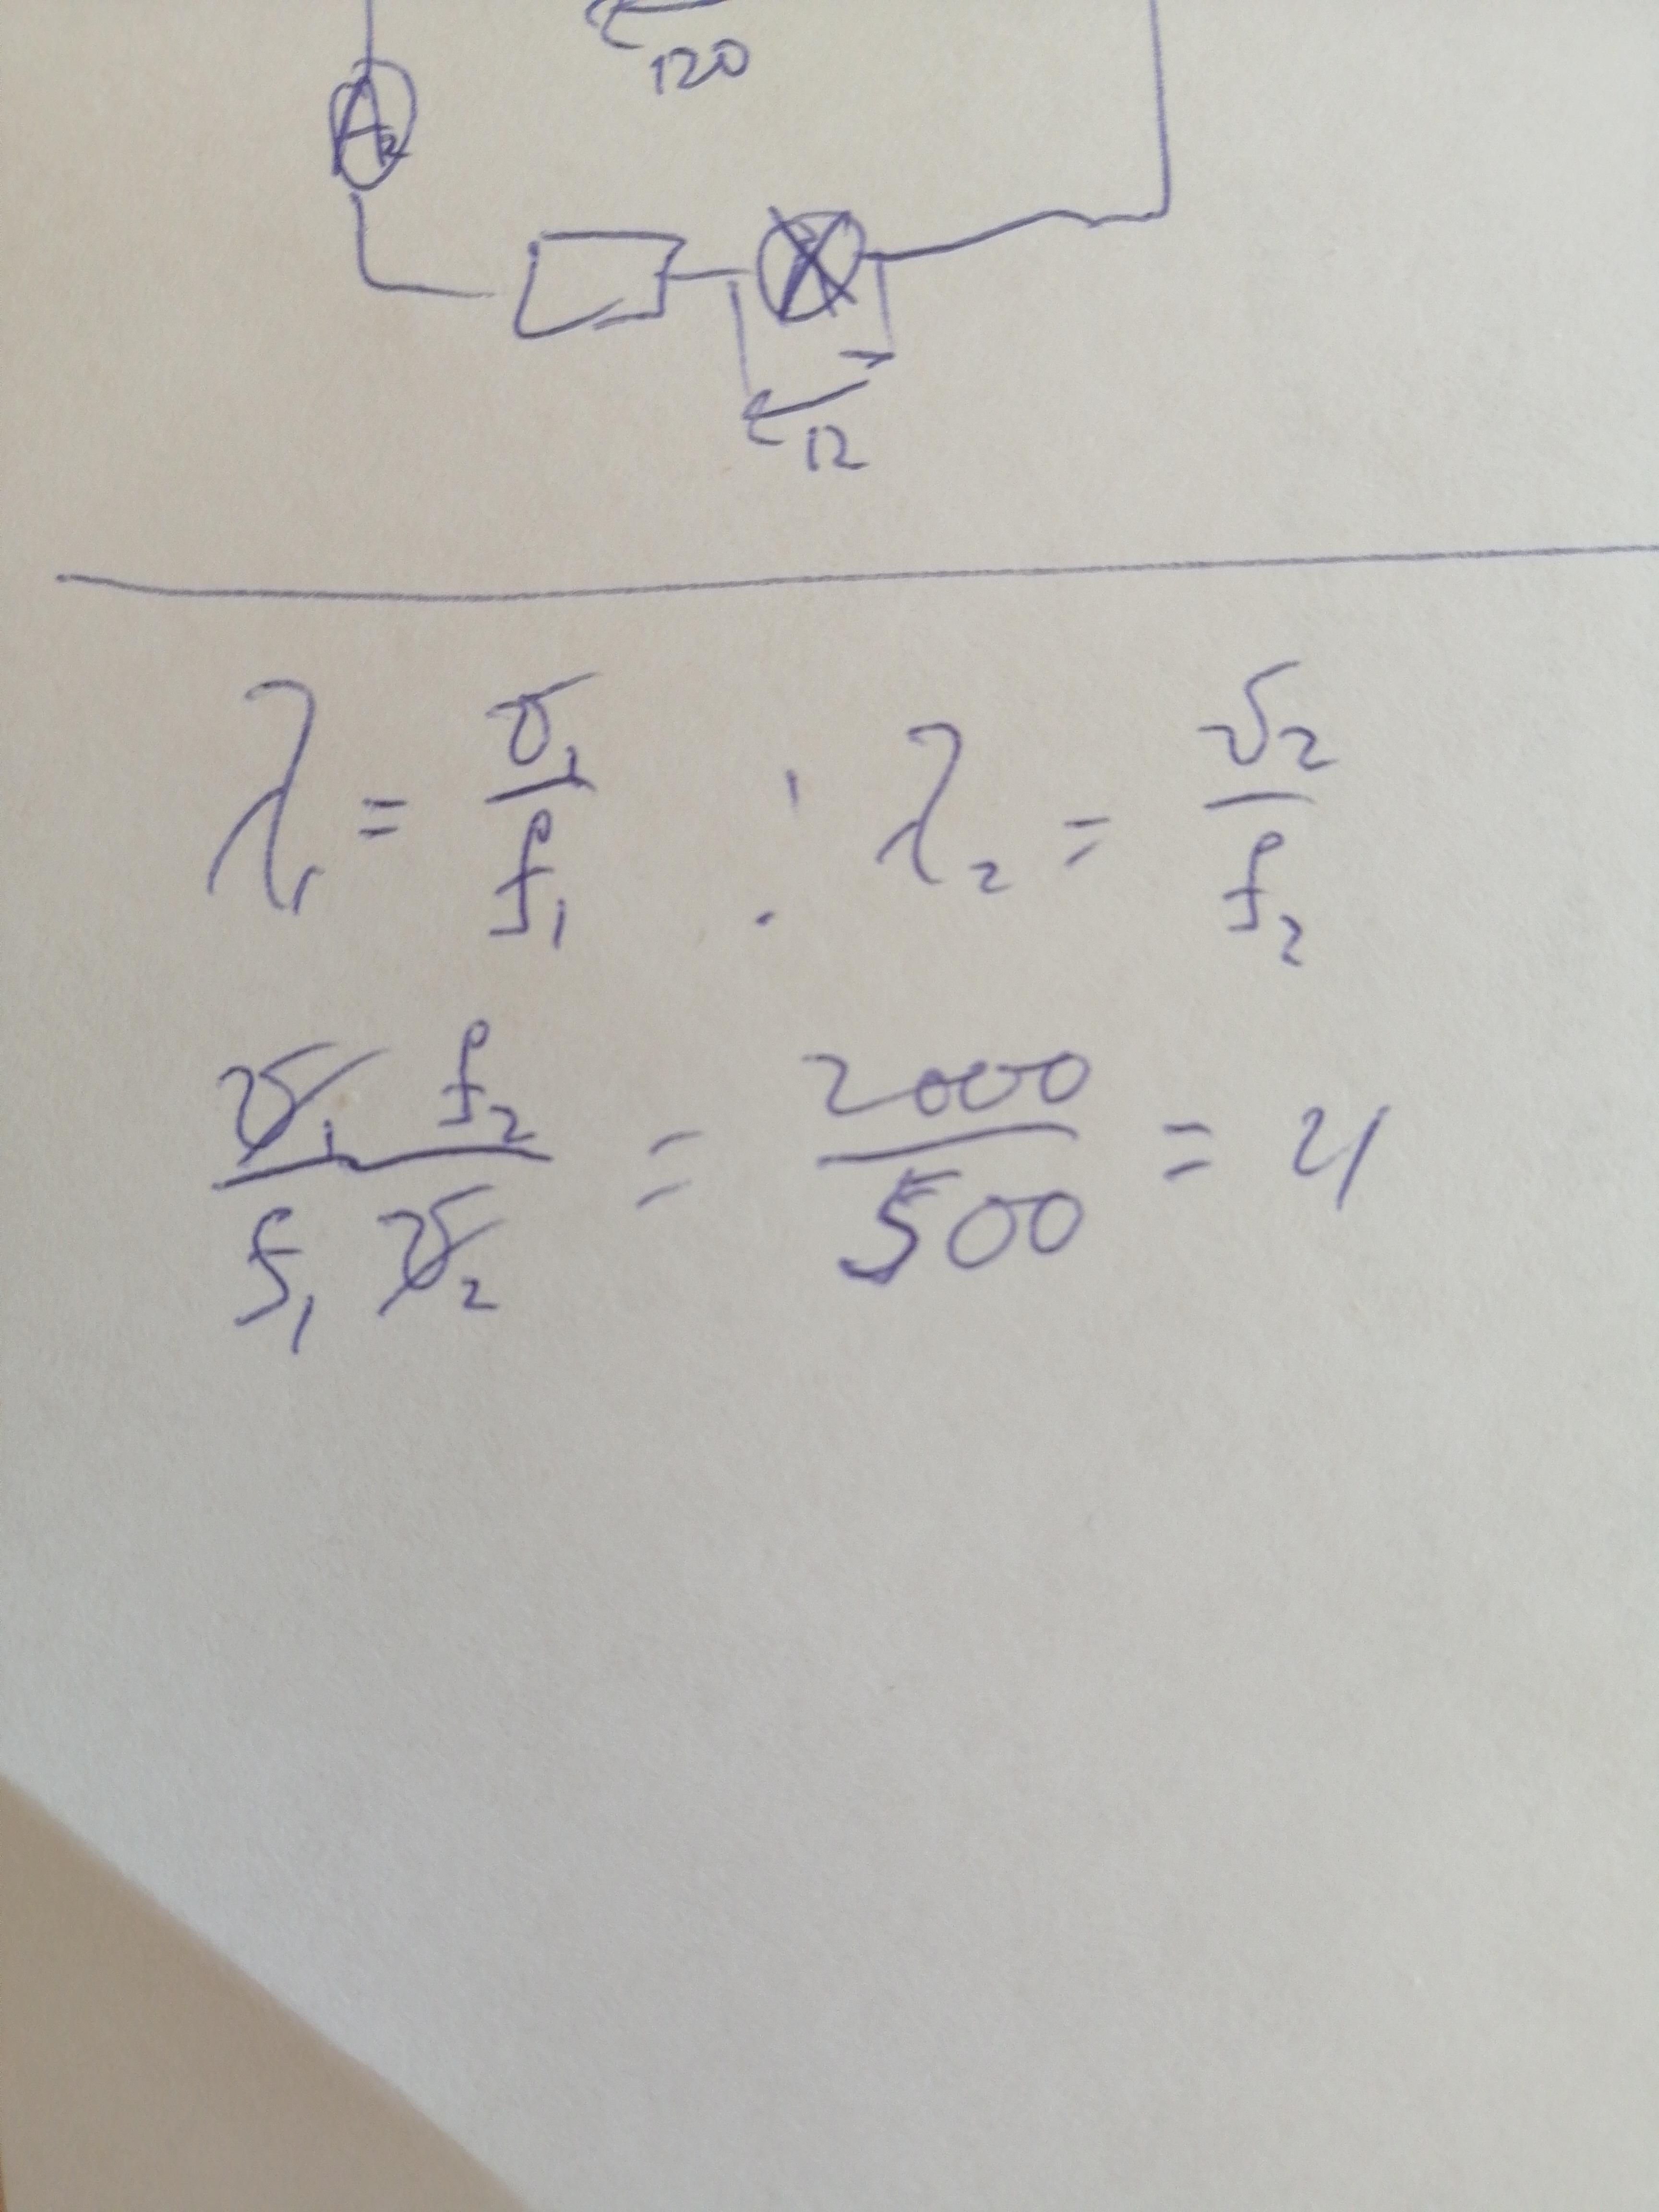 120
A₂
12
λ₁ = v₁/f₁ : λ₂ = v₂/f₂
v₁ f₂ / f₁ v₂ = 2000/500 = 4